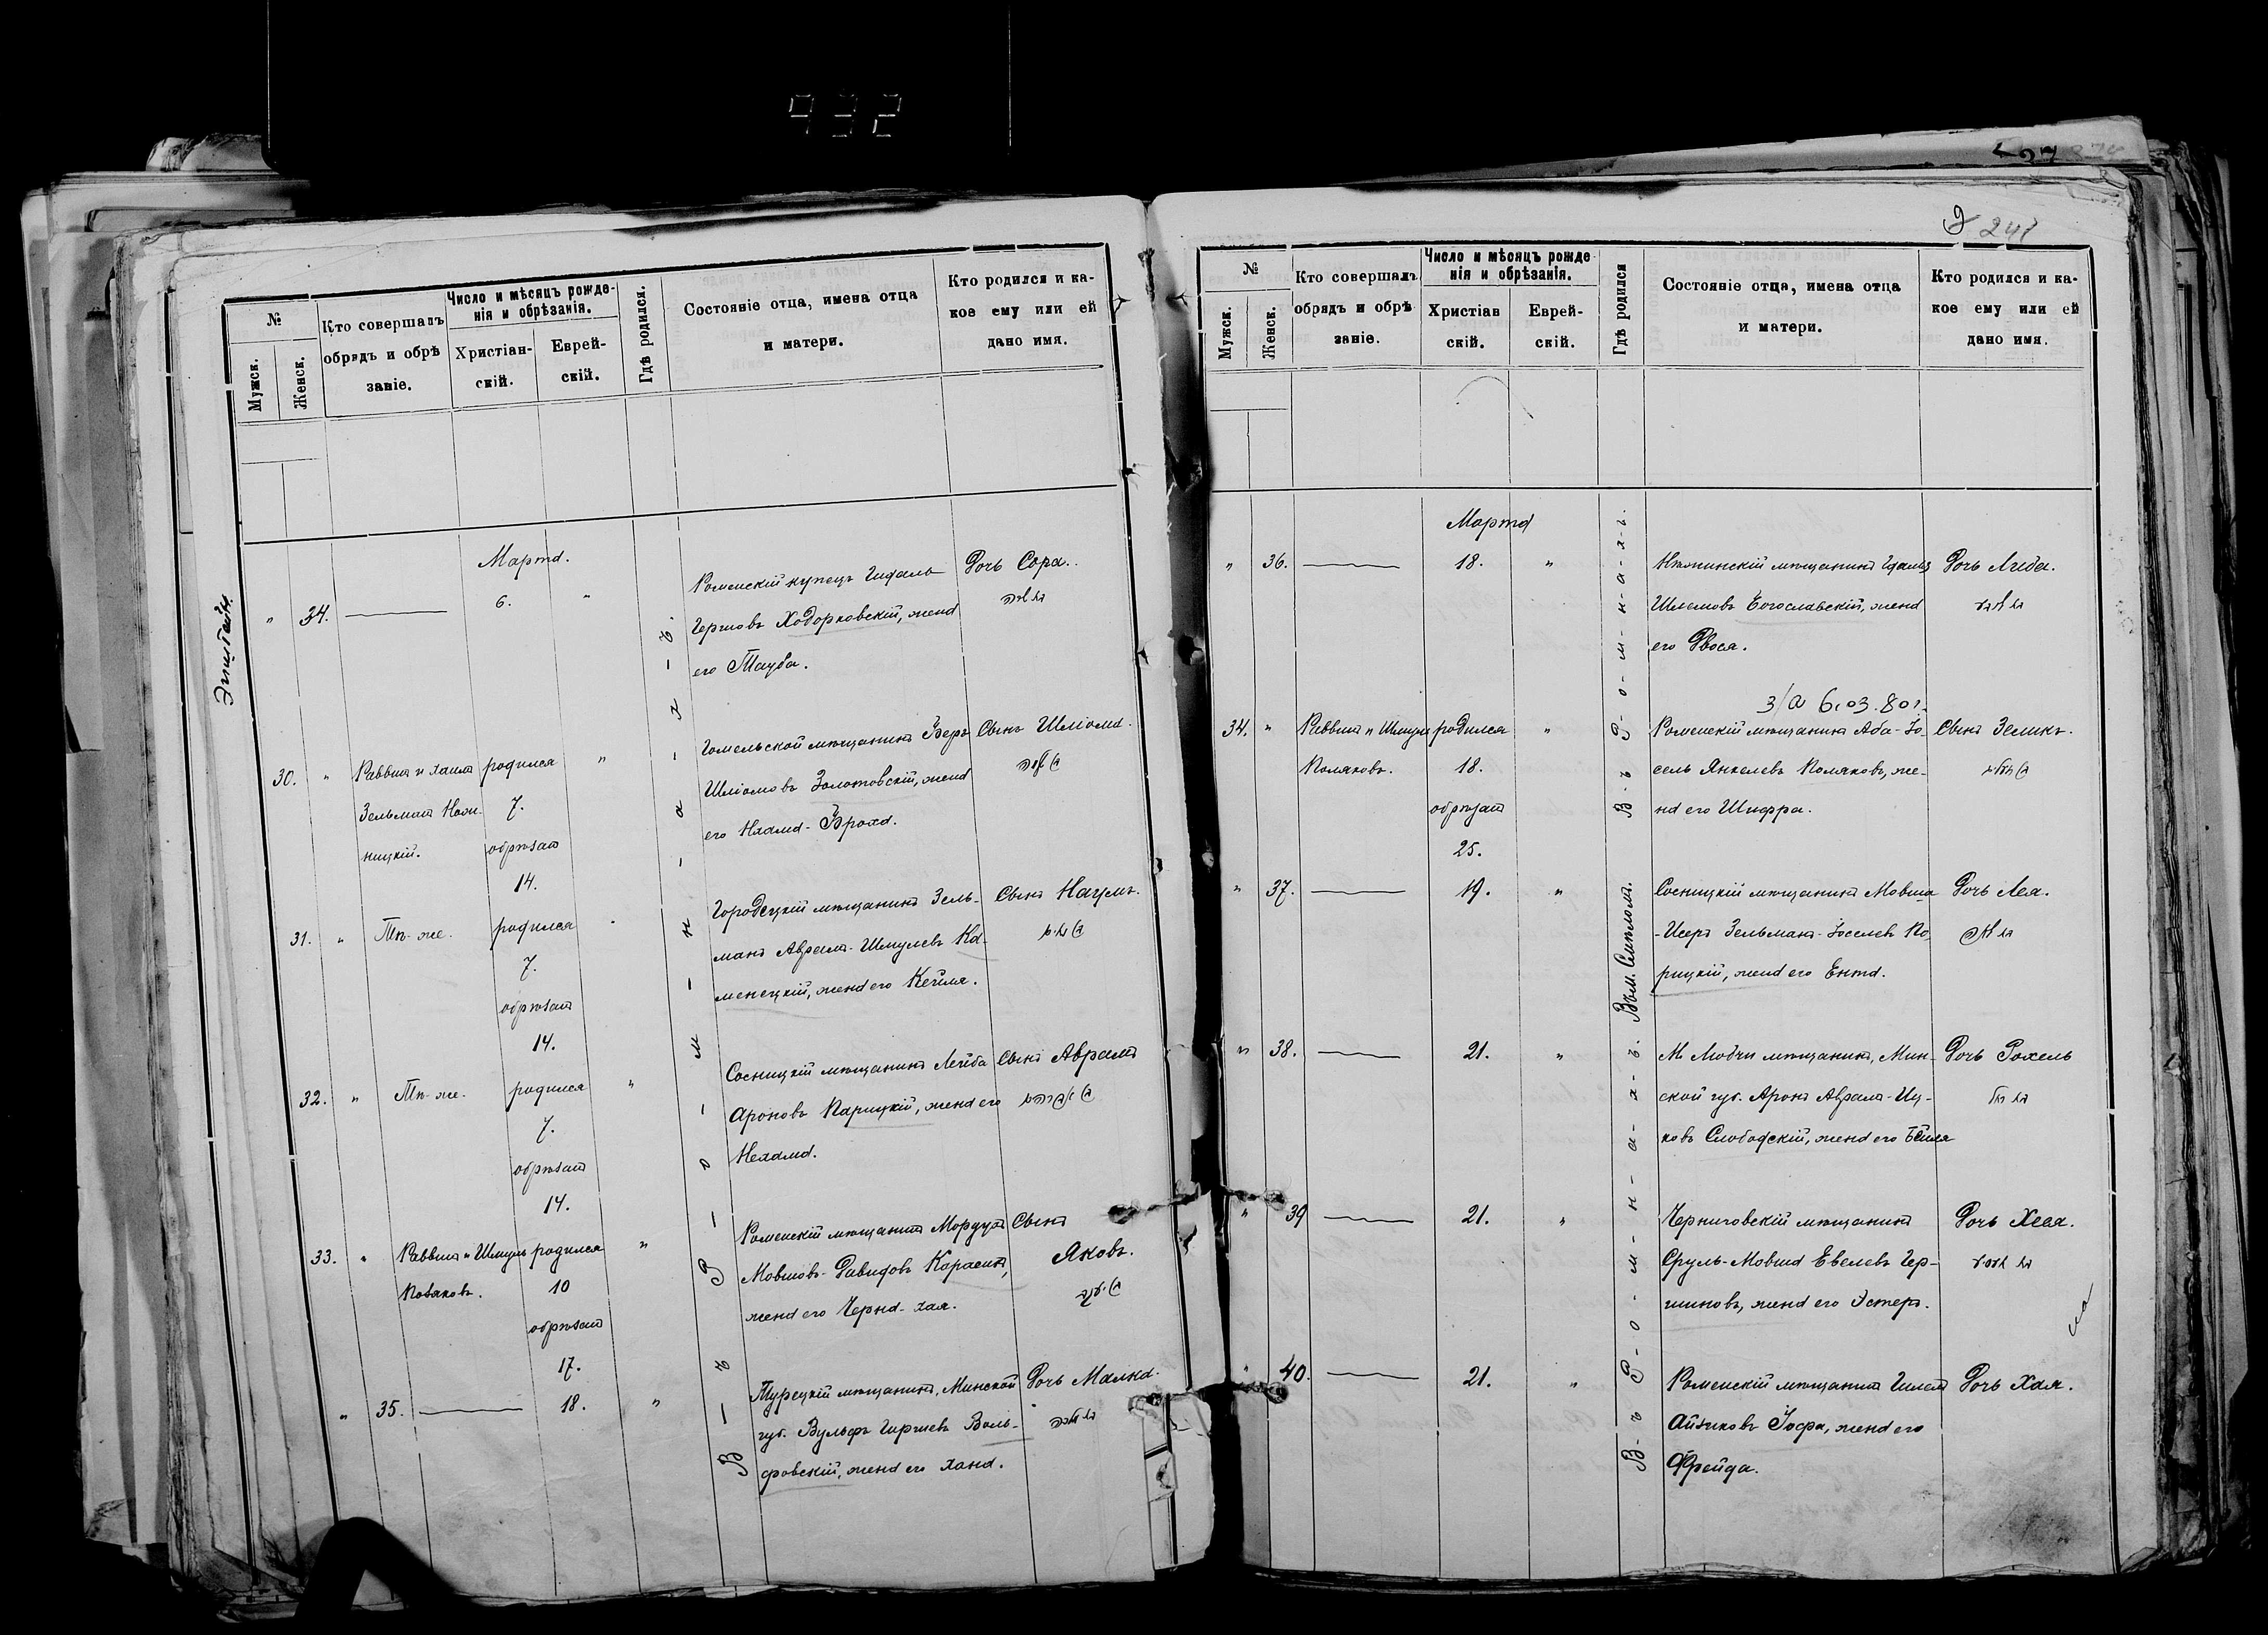 932
Эпштейн.
№
Мужск.
Женск.
Кто совершалъ
обрядъ и обрѣ
заніе.
Число и мѣсяцъ рожде-
нія и обрѣзанія.
Христіан-
скій.
Еврей-
скій.
Гдѣ родился.
Состояніе отца, имена отца
и матери.
Кто родился и ка-
кое ему или ей
дано имя.
Марта.
В - ъ Р - о - м - н - а - х - ъ.
" 34. 6. "
Роменскій купецъ Гидаль
Гершовъ Ходорковскій, жена
его Тауба.
Дочь Сора.
בת שרה
30. " Раввинъ и Хаимъ
Зельманъ
ницкій.
родился
7.
обрѣзанъ
14.
"
Гомельской мѣщанинъ Беръ
Шліомовъ Золотовскій, жена
его Нехама-Броха.
Сынъ Шліома.
בן שלמה
31. " Тѣ-же.
родился
7.
обрѣзанъ
14.
Городецкій мѣщанинъ Зель-
манъ Аврамъ-Шмулевъ Ка-
менецкій, жена его Кейля.
Сынъ Наумъ.
בן
32. " Тѣ-же.
родился
7.
обрѣзанъ
14.
"
Сосницкій мѣщанинъ Лейба
Ароновъ Парицкій, жена его
Нехама.
Сынъ Аврамъ
בן אברהם
33. " Раввинъ и Шмуль
Поляковъ.
родился
10
обрѣзанъ
17.
"
Роменскій мѣщанинъ Мордухъ
Мовшовъ-Давидовъ Карасикъ,
жена его Черна-Хая.
Сынъ
Яковъ.
בן יעקב
" 35. 18. "
Турецкій мѣщанинъ, Минской
губ. Вульфъ Гиршевъ Воль-
фовскій, жена его Хана.
Дочь Малка.
בת מלכה
9 241
№
Мужск.
Женск.
Кто совершалъ
обрядъ и обрѣ
заніе.
Число и мѣсяцъ рожде
нія и обрѣзанія.
Христіан
скій.
Еврей-
скій.
Гдѣ родился
Состояніе отца, имена отца
и матери.
Кто родился и ка-
кое ему или ей
дано имя.
Марта
В - ъ Р - о - м - н - а - х - ъ.
" 36. 18. "
Нѣжинскій мѣщанинъ Гдаль
Шлемовъ Богославскій, жена
его Двося.
Дочь Либа.
בת ליבא
3/а 6.03.80г.
34. " Раввинъ и Шмуль
Поляковъ.
родился
18.
обрѣзанъ
25.
"
Роменскій мѣщанинъ Аба-Іо-
сель Янкелевъ Поляковъ, же-
на его Шифра.
Сынъ Зеликъ.
בן זעליק
" 37. 19. "
Въ м. Смѣломъ.
Сосницкій мѣщанинъ Мовша
-Исеръ Зельманъ-Іоселевъ По
рицкій, жена его Ента.
Дочь Лея.
בת לאה
В - ъ Р - о - м - н - а - х - ъ.
" 38. 21. "
М. Любчи мѣщанинъ, Мин-
ской губ. Аронъ Аврамъ-Иц-
ковъ Слободскій, жена его Бейля
Дочь Рохель
בת רחל
" 39 21. "
Черниговскій мѣщанинъ
Сруль-Мовша Евелевъ Гер-
шиновъ, жена его Эстеръ.
Дочь Хася.
בת חאסיא
" 40. 21. "
Роменскій мѣщанинъ Гилель
Айзиковъ Іофа, жена его
Фрейда.
Дочь Хая.